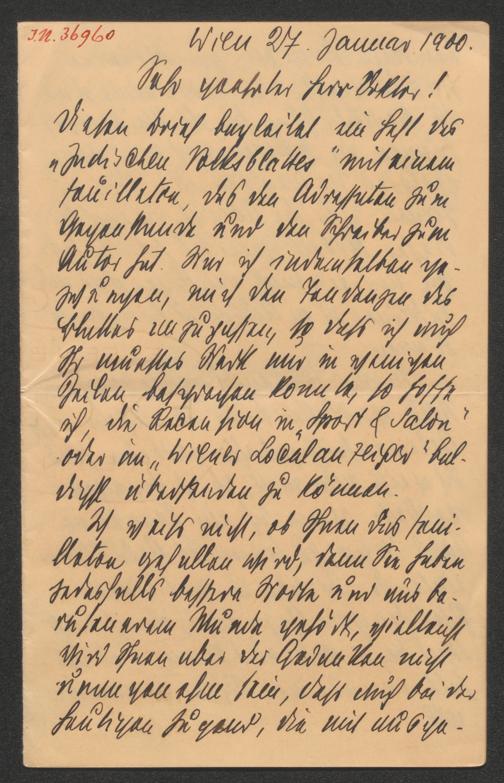 I.N. 36960
Wien 27. Januar 1900.
Sehr geehrter Herr Doktor!
Diesen Brief begleitet ein Heft des
"Jüdischen Volksblattes" mit einem
Feuilleton, das den Adressaten zum
Gegenstande und den Schreiber zum
Autor hat. War ich in demselben ge-
zwungen, mich den Tendenzen des
Blattes anzupassen, so daß ich auch
Ihr neuestes Werk nur in wenigen
Zeilen besprechen konnte, so hoffe
ich, die Recension in "Sport & Salon"
oder im "Wiener Localanzeiger" bal-
digst übersenden zu können.
Ich weiß nicht, ob Ihnen das Feuil-
lleton gefallen wird, denn Sie haben
jedesfalls bessere Worte und aus be-
rufenerem Munde gehört, vielleicht
wird Ihnen aber der Gedanke nicht
unangenehm sein, daß auch bei der
heutigen Jugend, die mit ausge-